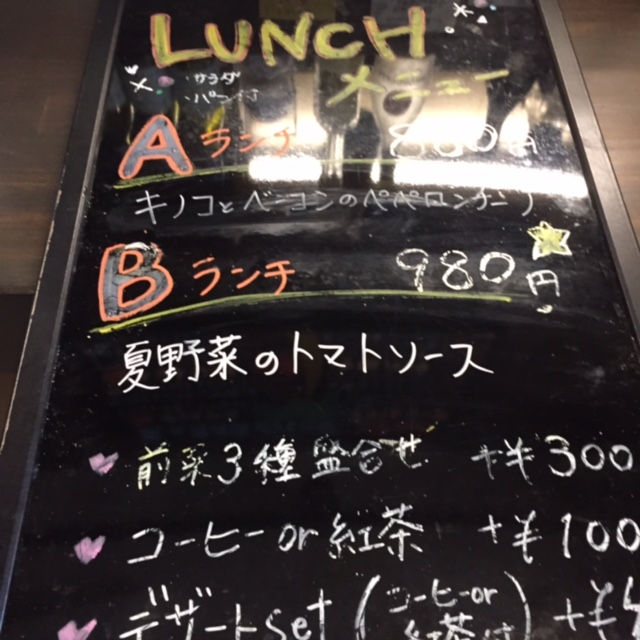 LUNCH
・サラダ
・パン付
メニュー
Aランチ 880円
キノコとベーコンのペペロンチーノ
Bランチ 980円
夏野菜のトマトソース
前菜3種盛合せ +¥300
コーヒー or 紅茶 +¥100
デザートset (コーヒー or 紅茶付) +¥